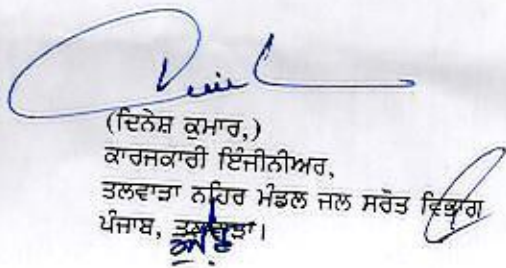 (ਦਿਨੇਸ਼ ਕੁਮਾਰ,)
ਕਾਰਜਕਾਰੀ ਇੰਜੀਨੀਅਰ,
ਤਲਵਾੜਾ ਨਹਿਰ ਮੰਡਲ ਜਲ ਸਰੋਤ ਵਿਭਾਗ
ਪੰਜਾਬ, ਤਲਵਾੜਾ।